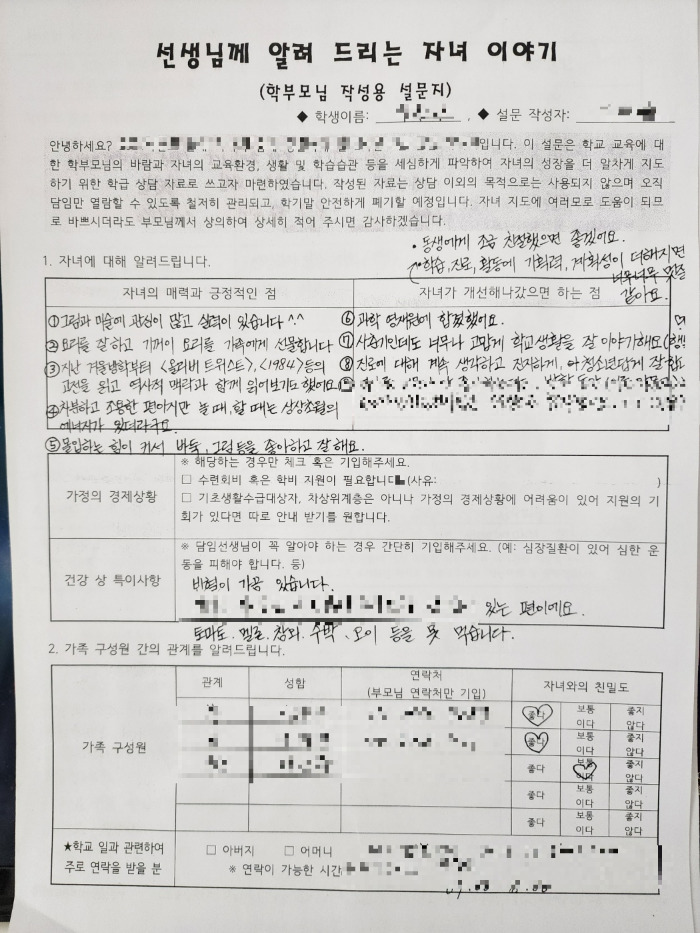 선생님께 알려 드리는 자녀 이야기
(학부모님 작성용 설문지)
◆ 학생이름: , ◆ 설문 작성자:
안녕하세요? 입니다. 이 설문은 학교 교육에 대
한 학부모님의 바람과 자녀의 교육환경, 생활 및 학습습관 등을 세심하게 파악하여 자녀의 성장을 더 알차게 지도
하기 위한 학급 상담 자료로 쓰고자 마련하였습니다. 작성된 자료는 상담 이외의 목적으로는 사용되지 않으며 오직
담임만 열람할 수 있도록 철저히 관리되고, 학기말 안전하게 폐기할 예정입니다. 자녀 지도에 여러모로 도움이 되므
로 바쁘시더라도 부모님께서 상의하여 상세히 적어 주시면 감사하겠습니다.
• 동생에게 조금 친절했으면 좋겠어요.
• 학습, 진로, 활동에 기획력, 계획성이 더해지면
너무너무 멋질
같아요.
1. 자녀에 대해 알려드립니다.
자녀의 매력과 긍정적인 점
자녀가 개선해나갔으면 하는 점
① 그림과 미술에 관심이 많고 실력이 있습니다 ^.^
② 요리를 잘 하고 기꺼이 요리를 가족에게 선물합니다
③ 지난 겨울방학부터 <올리버 트위스트>, <1984> 등의
고전을 읽고 역사적 맥락과 함께 읽어보기도 했어요
④ 차분하고 조용한 편이지만 놀 때, 할 때는 상상초월의
에너지가 있더라구요.
⑤ 몰입하는 힘이 커서 바둑, 그림 등을 좋아하고 잘 해요.
⑥ 과학 영재원에 합격했어요.
⑦ 사춘기인데도 너무나 고맙게 학교생활을 잘 이야기해요
⑧ 진로에 대해 계속 생각하고 진지하게, 아 청소년답게 잘
가정의 경제상황
※ 해당하는 경우만 체크 혹은 기입해주세요.
□ 수련회비 혹은 학비 지원이 필요합니다 (사유: )
□ 기초생활수급대상자, 차상위계층은 아니나 가정의 경제상황에 어려움이 있어 지원의 기
회가 있다면 따로 안내 받기를 원합니다.
건강 상 특이사항
※ 담임선생님이 꼭 알아야 하는 경우 간단히 기입해주세요. (예: 심장질환이 있어 심한 운
동을 피해야 합니다. 등)
비염이 가끔 있습니다.
있는 편이에요.
토마토, 멜론, 참외, 수박, 오이 등을 못 먹습니다.
2. 가족 구성원 간의 관계를 알려드립니다.
가족 구성원
관계
성함
연락처
(부모님 연락처만 기입)
자녀와의 친밀도
좋다 보통이다 좋지 않다
좋다 보통이다 좋지 않다
좋다 보통이다 좋지 않다
좋다 보통이다 좋지 않다
좋다 보통이다 좋지 않다
★학교 일과 관련하여
주로 연락을 받을 분
□ 아버지 □ 어머니
※ 연락이 가능한 시간